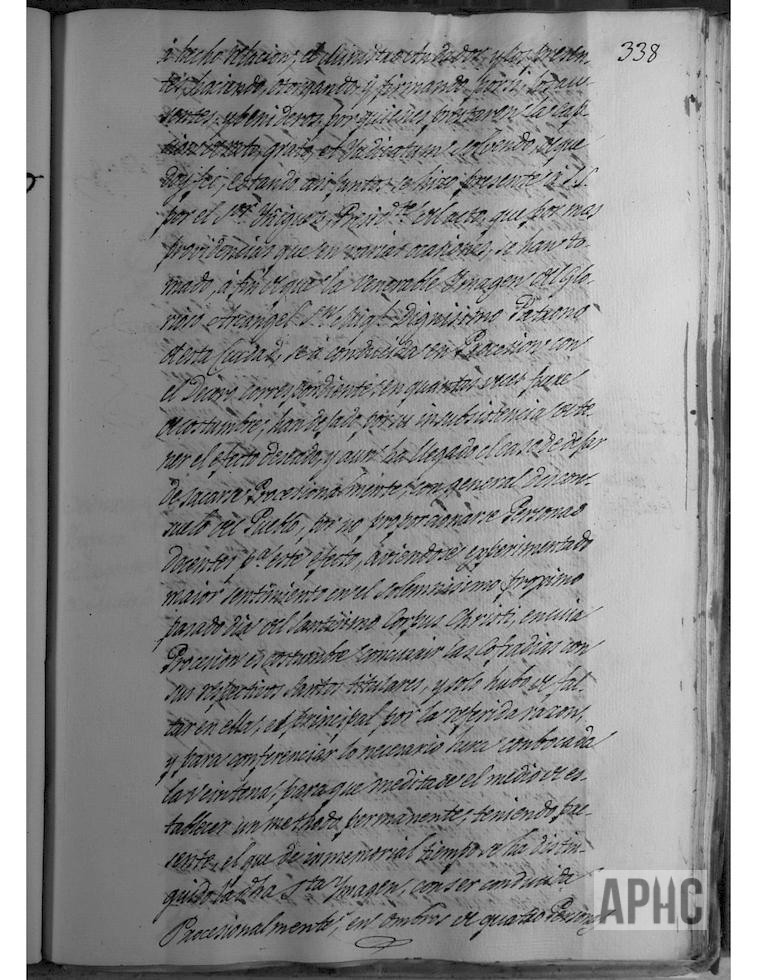 338
é hecho relacion; de administradores, y los presen-
tes, haciendo, otorgando, y firmando por sí, los au-
sentes, y benideros, por quienes prestaron la cau-
cion de rato, grato, et Judicatum solvendo, de que
doy fee; estando asi juntos, se hizo presente á S.S.
por el Sor. Presidte. del acto, que por mas
providencias que en varias ocasiones, se han to-
mado, á fin de que la venerable Ymagen del Glo-
rioso Archangel Sn. Migl. Dignissimo Patrono
de esta Ciudad, sea conducida en Procesion con
el Decoro correspondiente, en quantas veces fuere
de costumbre; han dejado por su insubsistencia de te-
ner el efecto deseado, y aun ha llegado el caso de dejar
de sacarse Procesionalmente, con general descon-
suelo del Pueblo, por no proporcionarse Personas
Decentes pa. este efecto, aviendose experimentado
maior sentimiento en el solemnissimo proximo
pasado dia del Santissimo Corpus Christi, en cuia
Procesion es costumbre concurrir las Cofradias con
sus respectivos Santos titulares, y solo hubo de fal-
tar en ellas, el principal por la referida razon,
y para conferenciar lo necesario hera conbocada
la Veintena, para que meditase el medio de es-
tablecer un methodo permanente, teniendo pre-
sente, el que de inmemorial tiempo se ha distin-
guido la dha Sta. Ymagen, con ser conducida
Procesionalmente, en Ombros de quatro Personas
APHC